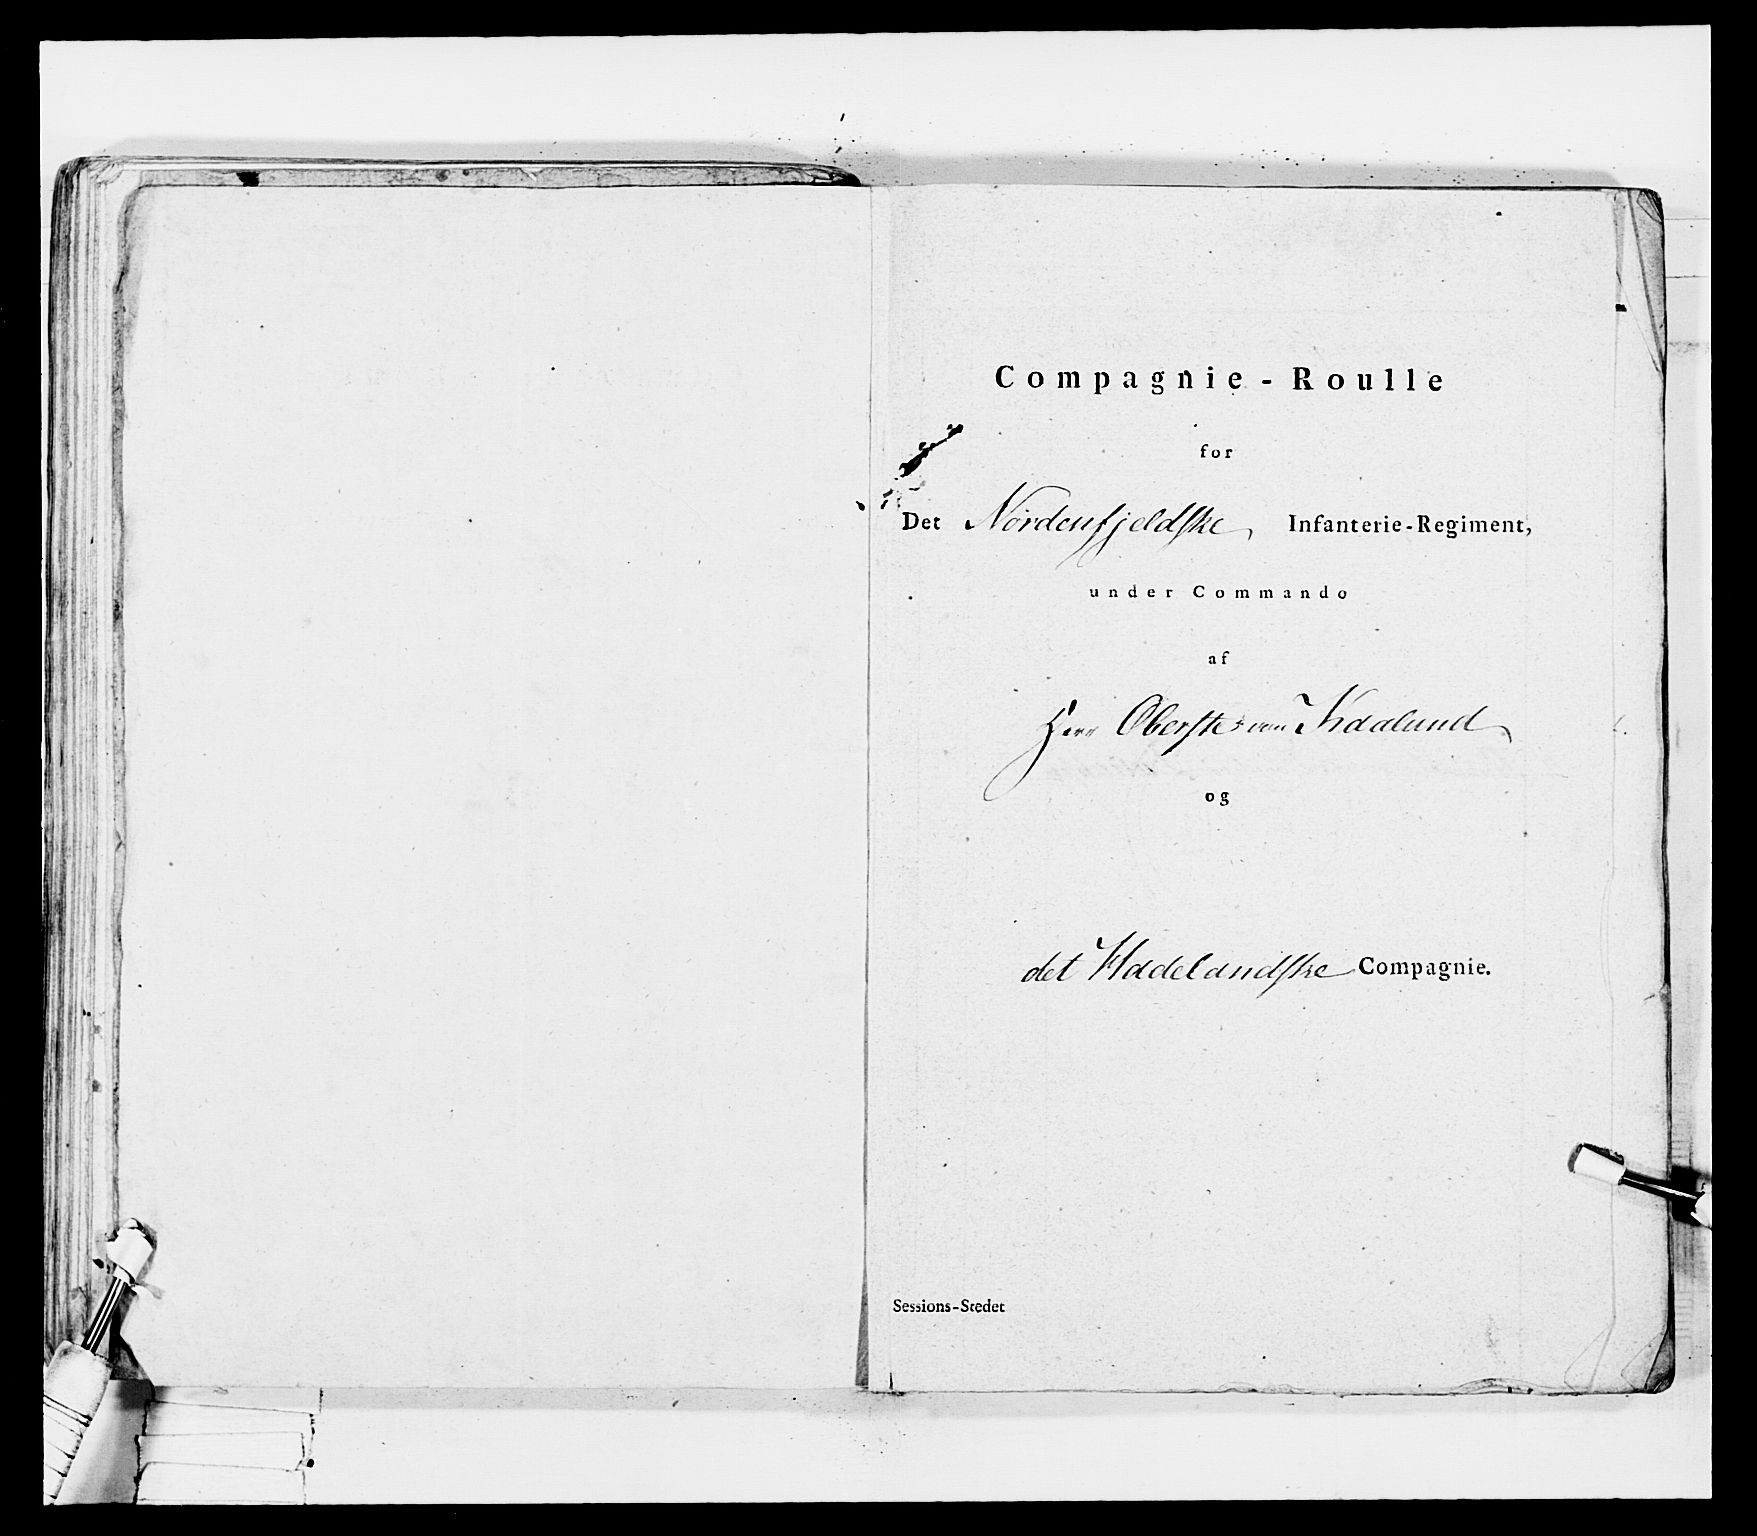 Compagnie-Roulle
for
Det Nordenfjeldske Infanterie-Regiment,
under Commando
af
Herr Oberste von Kaalund
og
det Hadelandske Compagnie.
Sessions-Stedet